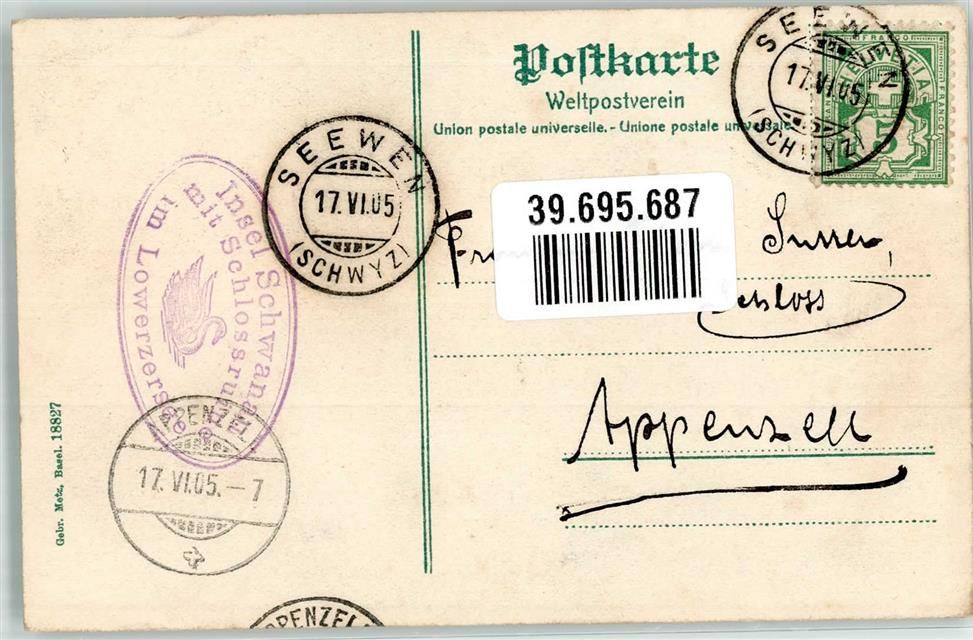 Postkarte
Weltpostverein
Union postale universelle. - Unione postale universale.
SEEWEN
17.VI.05
(SCHWYZ)
HELVETIA
FRANCO
5
SEEWEN
17.VI.05
(SCHWYZ)
39.695.687
Insel Schwanau
mit Schlossruine
im Lowerzersee
Schloss
Appenzell
APPENZELL
17.VI.05.-7
APPENZELL
Gebr. Metz, Basel. 18827